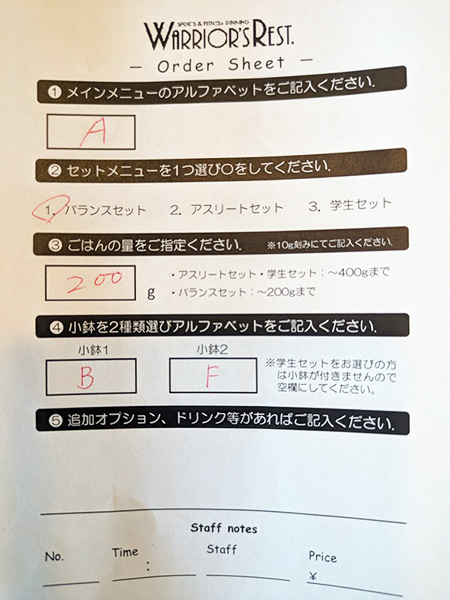 SPORTS & FITNESS DINNING
WARRIOR'S REST.
— Order Sheet —
① メインメニューのアルファベットをご記入ください.
A
② セットメニューを1つ選び○をしてください.
1. バランスセット 2. アスリートセット 3. 学生セット
③ ごはんの量をご指定ください. ※10g刻みにてご記入ください.
200 g
・アスリートセット・学生セット：～400gまで
・バランスセット：～200gまで
④ 小鉢を2種類選びアルファベットをご記入ください.
小鉢1 小鉢2
B F
※学生セットをお選びの方
は小鉢が付きませんので
空欄にしてください。
⑤ 追加オプション、ドリンク等があればご記入ください.
Staff notes
No. Time : Staff Price
¥